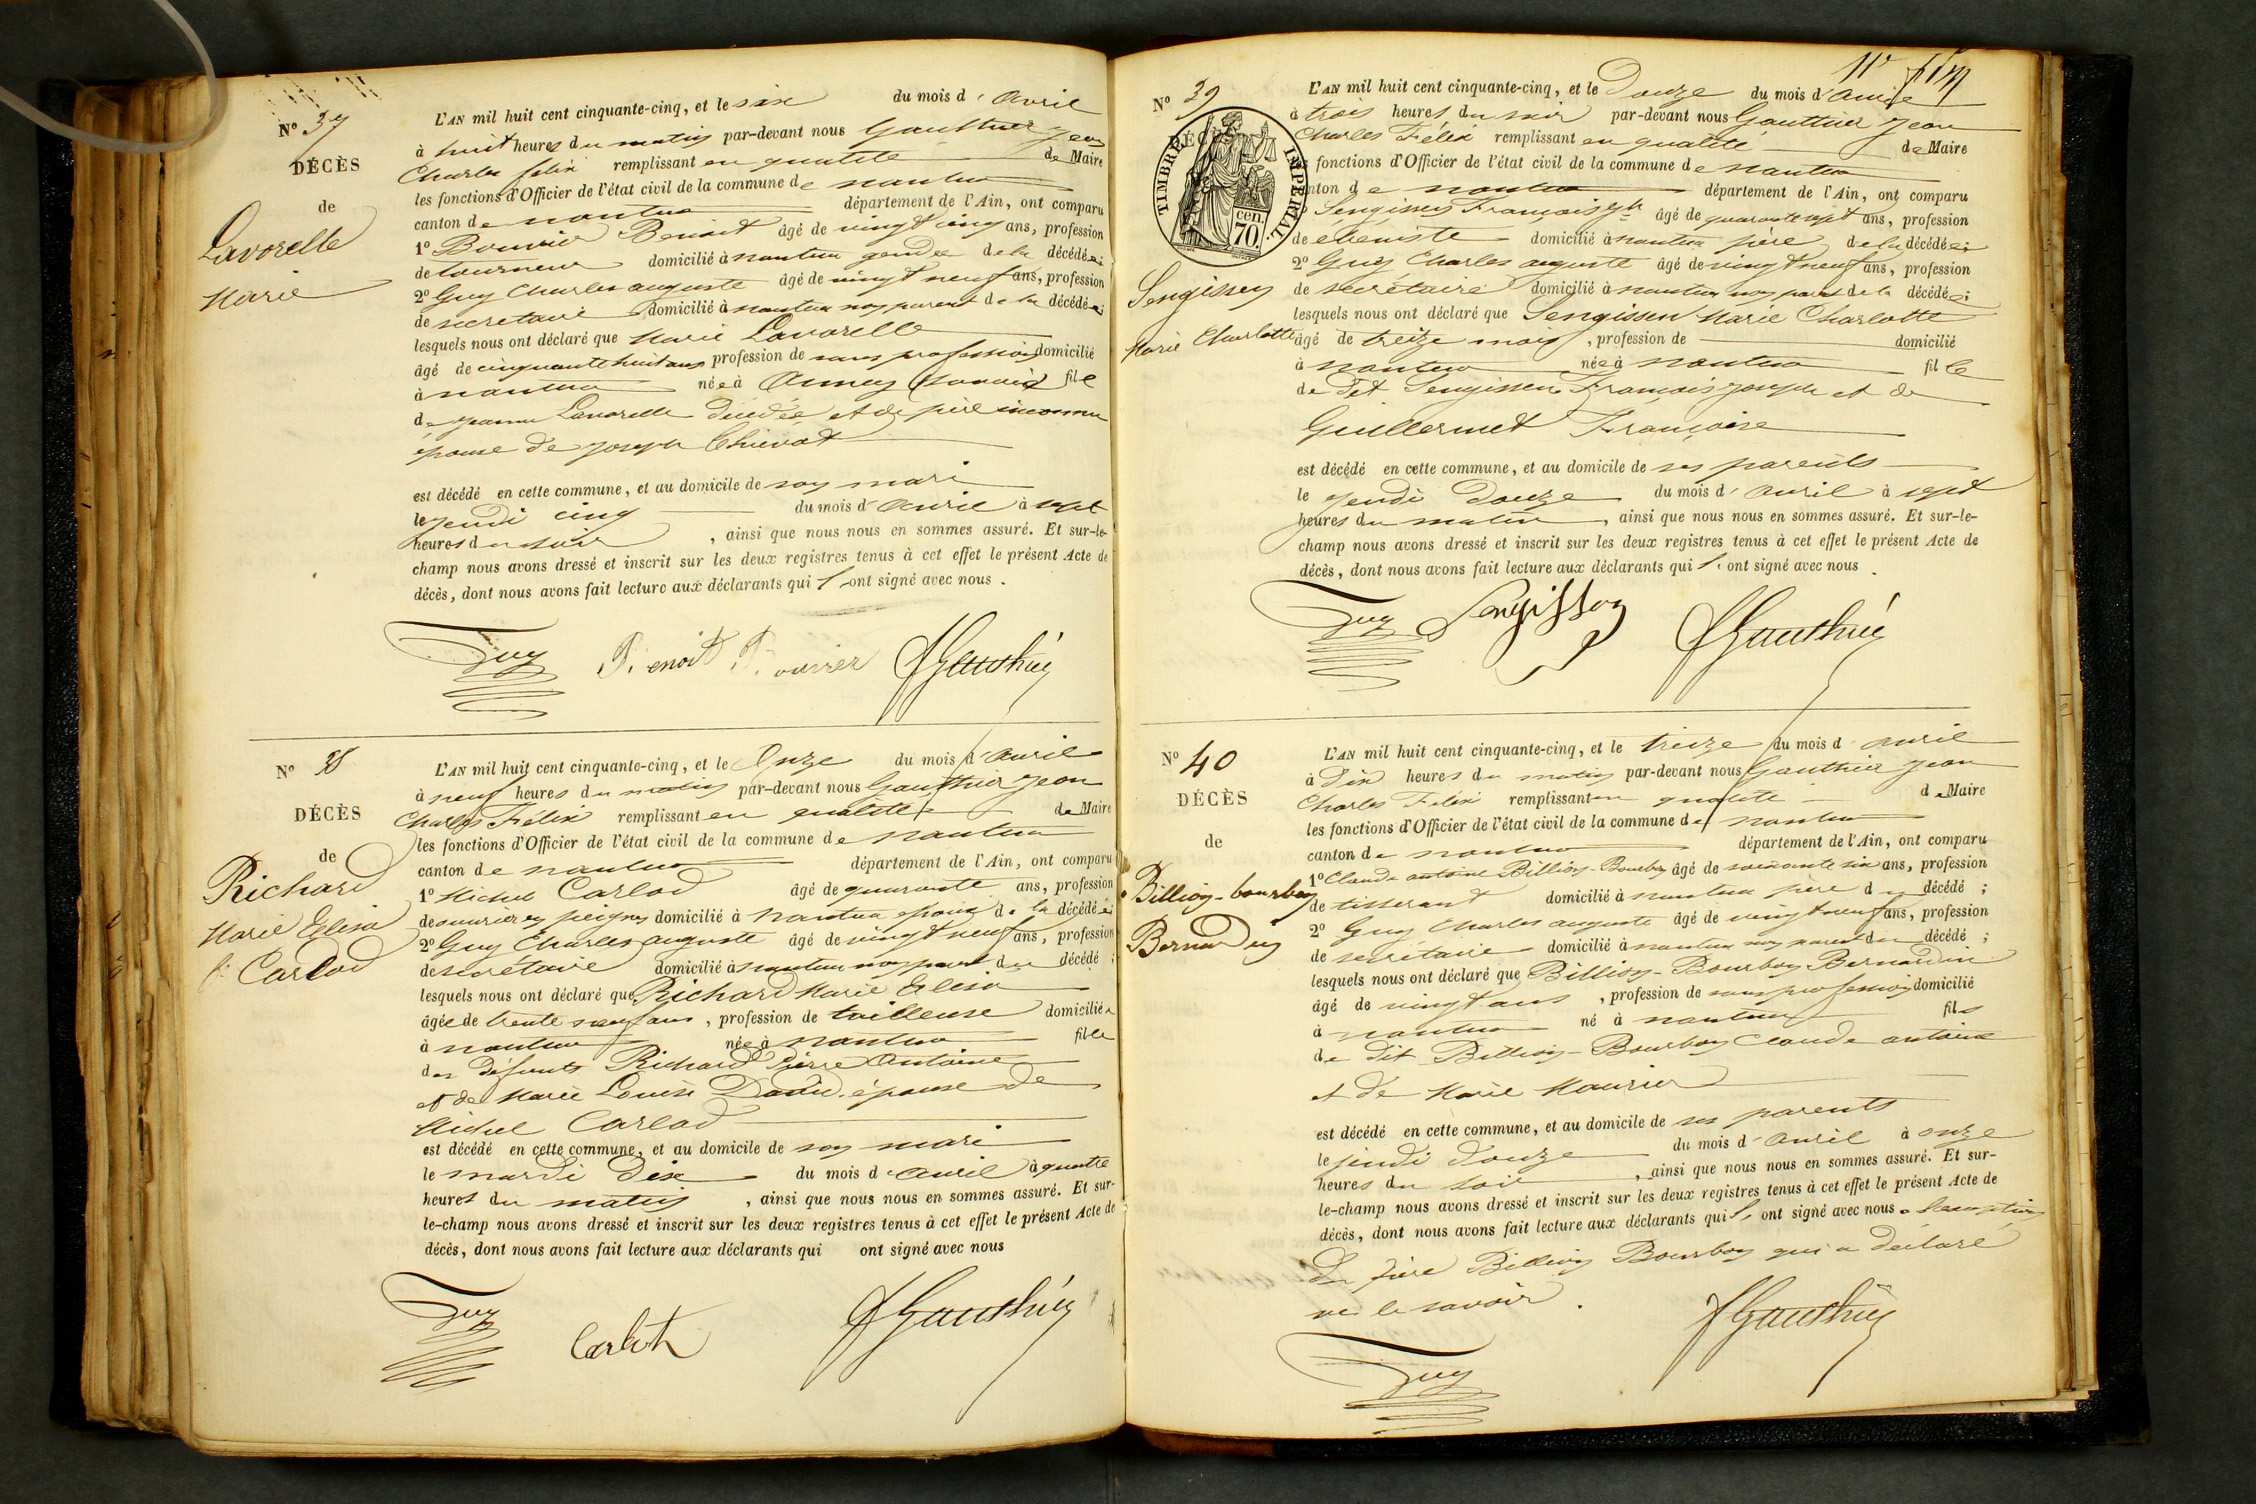 N° 37
DÉCÈS
de
Lavorelle
Marie
L'AN mil huit cent cinquante-cinq, et le six du mois d'avril
à huit heures du matin par-devant nous Gauthier Jean
Charles félix remplissant en qualité de Maire
les fonctions d'Officier de l'état civil de la commune de nantua
canton de nantua département de l'Ain, ont comparu
1° Bouvier Benoit âgé de vingt cinq ans, profession
de tourneur domicilié à nantua gendre de la décédée;
2° Guy Charles auguste âgé de vingt neuf ans, profession
de secretaire domicilié à nantua non parent de la décédée;
lesquels nous ont déclaré que Marie Lavorelle
âgé de cinquante huit ans profession de sans profession domicilié
à nantua née à Annecy (Savoie) fille
de jeanne Lavorelle décédée et de père inconnu
épouse de joseph Chievat
est décédé en cette commune, et au domicile de son mari
le jeudi cinq du mois d'avril à sept
heures du soir, ainsi que nous nous en sommes assuré. Et sur-le-
champ nous avons dressé et inscrit sur les deux registres tenus à cet effet le présent Acte de
décès, dont nous avons fait lecture aux déclarants qui l'ont signé avec nous.
Guy Benoit Bouvier Gauthier
N° 38
DÉCÈS
de
Richard
Marie Elisa
f. Carlod
L'AN mil huit cent cinquante-cinq, et le Onze du mois d'avril
à neuf heures du matin par-devant nous Gauthier Jean
Charles Félix remplissant en qualité de Maire
les fonctions d'Officier de l'état civil de la commune de nantua
canton de nantua département de l'Ain, ont comparu
1° Michel Carlod âgé de quarante ans, profession
de ouvrier en peignes domicilié à nantua époux de la décédée;
2° Guy Charles auguste âgé de vingt neuf ans, profession
de secrétaire domicilié à nantua non parent du décédé;
lesquels nous ont déclaré que Richard Marie Elisa
âgée de trente neuf ans, profession de tailleuse domiciliée
à nantua née à nantua fille
des défunts Richard Pierre Antoine
et de Marie Louise David. épouse de
Michel Carlod
est décédé en cette commune, et au domicile de son mari
le mardi dix du mois d'avril à quatre
heures du matin, ainsi que nous nous en sommes assuré. Et sur-
le-champ nous avons dressé et inscrit sur les deux registres tenus à cet effet le présent Acte de
décès, dont nous avons fait lecture aux déclarants qui ont signé avec nous
Guy Carlod Gauthier
N° 39
DÉC
TIMBRE IMPÉRIAL
cen.
70.
Sengissen
Marie Charlotte
L'AN mil huit cent cinquante-cinq, et le Douze du mois d'avril
à trois heures du soir par-devant nous Gauthier Jean
Charles Félix remplissant en qualité de Maire
fonctions d'Officier de l'état civil de la commune de nantua
nton de nantua département de l'Ain, ont comparu
Sengissen François jh âgé de quarante sept ans, profession
de ebeniste domicilié à nantua père de la décédée;
2° Guy Charles auguste âgé de vingt neuf ans, profession
de secrétaire domicilié à nantua non parent de la décédée;
lesquels nous ont déclaré que Sengissen Marie Charlotte
âgé de treize mois, profession de domicilié
à nantua née à nantua fille
de dit Sengissen François joseph et de
Guillermet Françoise
est décédé en cette commune, et au domicile de ses parents
le jeudi douze du mois d'avril à sept
heures du matin, ainsi que nous nous en sommes assuré. Et sur-le-
champ nous avons dressé et inscrit sur les deux registres tenus à cet effet le présent Acte de
décès, dont nous avons fait lecture aux déclarants qui l'ont signé avec nous.
Guy Sengissen Gauthier
N° 40
DÉCÈS
de
Billion-bourbon
Bernardin
L'AN mil huit cent cinquante-cinq, et le treize du mois d'avril
à dix heures du matin par-devant nous Gauthier Jean
Charles Félix remplissant en qualité de Maire
les fonctions d'Officier de l'état civil de la commune de nantua
canton de nantua département de l'Ain, ont comparu
1° Claude antoine Billion-Bourbon âgé de soixante six ans, profession
de tisserant domicilié à nantua père du décédé;
2° Guy Charles auguste âgé de vingt neuf ans, profession
de secrétaire domicilié à nantua non parent du décédé;
lesquels nous ont déclaré que Billion-Bourbon Bernardin
âgé de vingt ans, profession de sans profession domicilié
à nantua né à nantua fils
de dit Billion-Bourbon Claude antoine
et de Marie Maurier
est décédé en cette commune, et au domicile de ses parents
le jeudi douze du mois d'avril à onze
heures du soir, ainsi que nous nous en sommes assuré. Et sur-
le-champ nous avons dressé et inscrit sur les deux registres tenus à cet effet le présent Acte de
décès, dont nous avons fait lecture aux déclarants qui l'ont signé avec nous a l'exception
du père Billion Bourbon qui a déclaré
ne le savoir.
Guy Gauthier